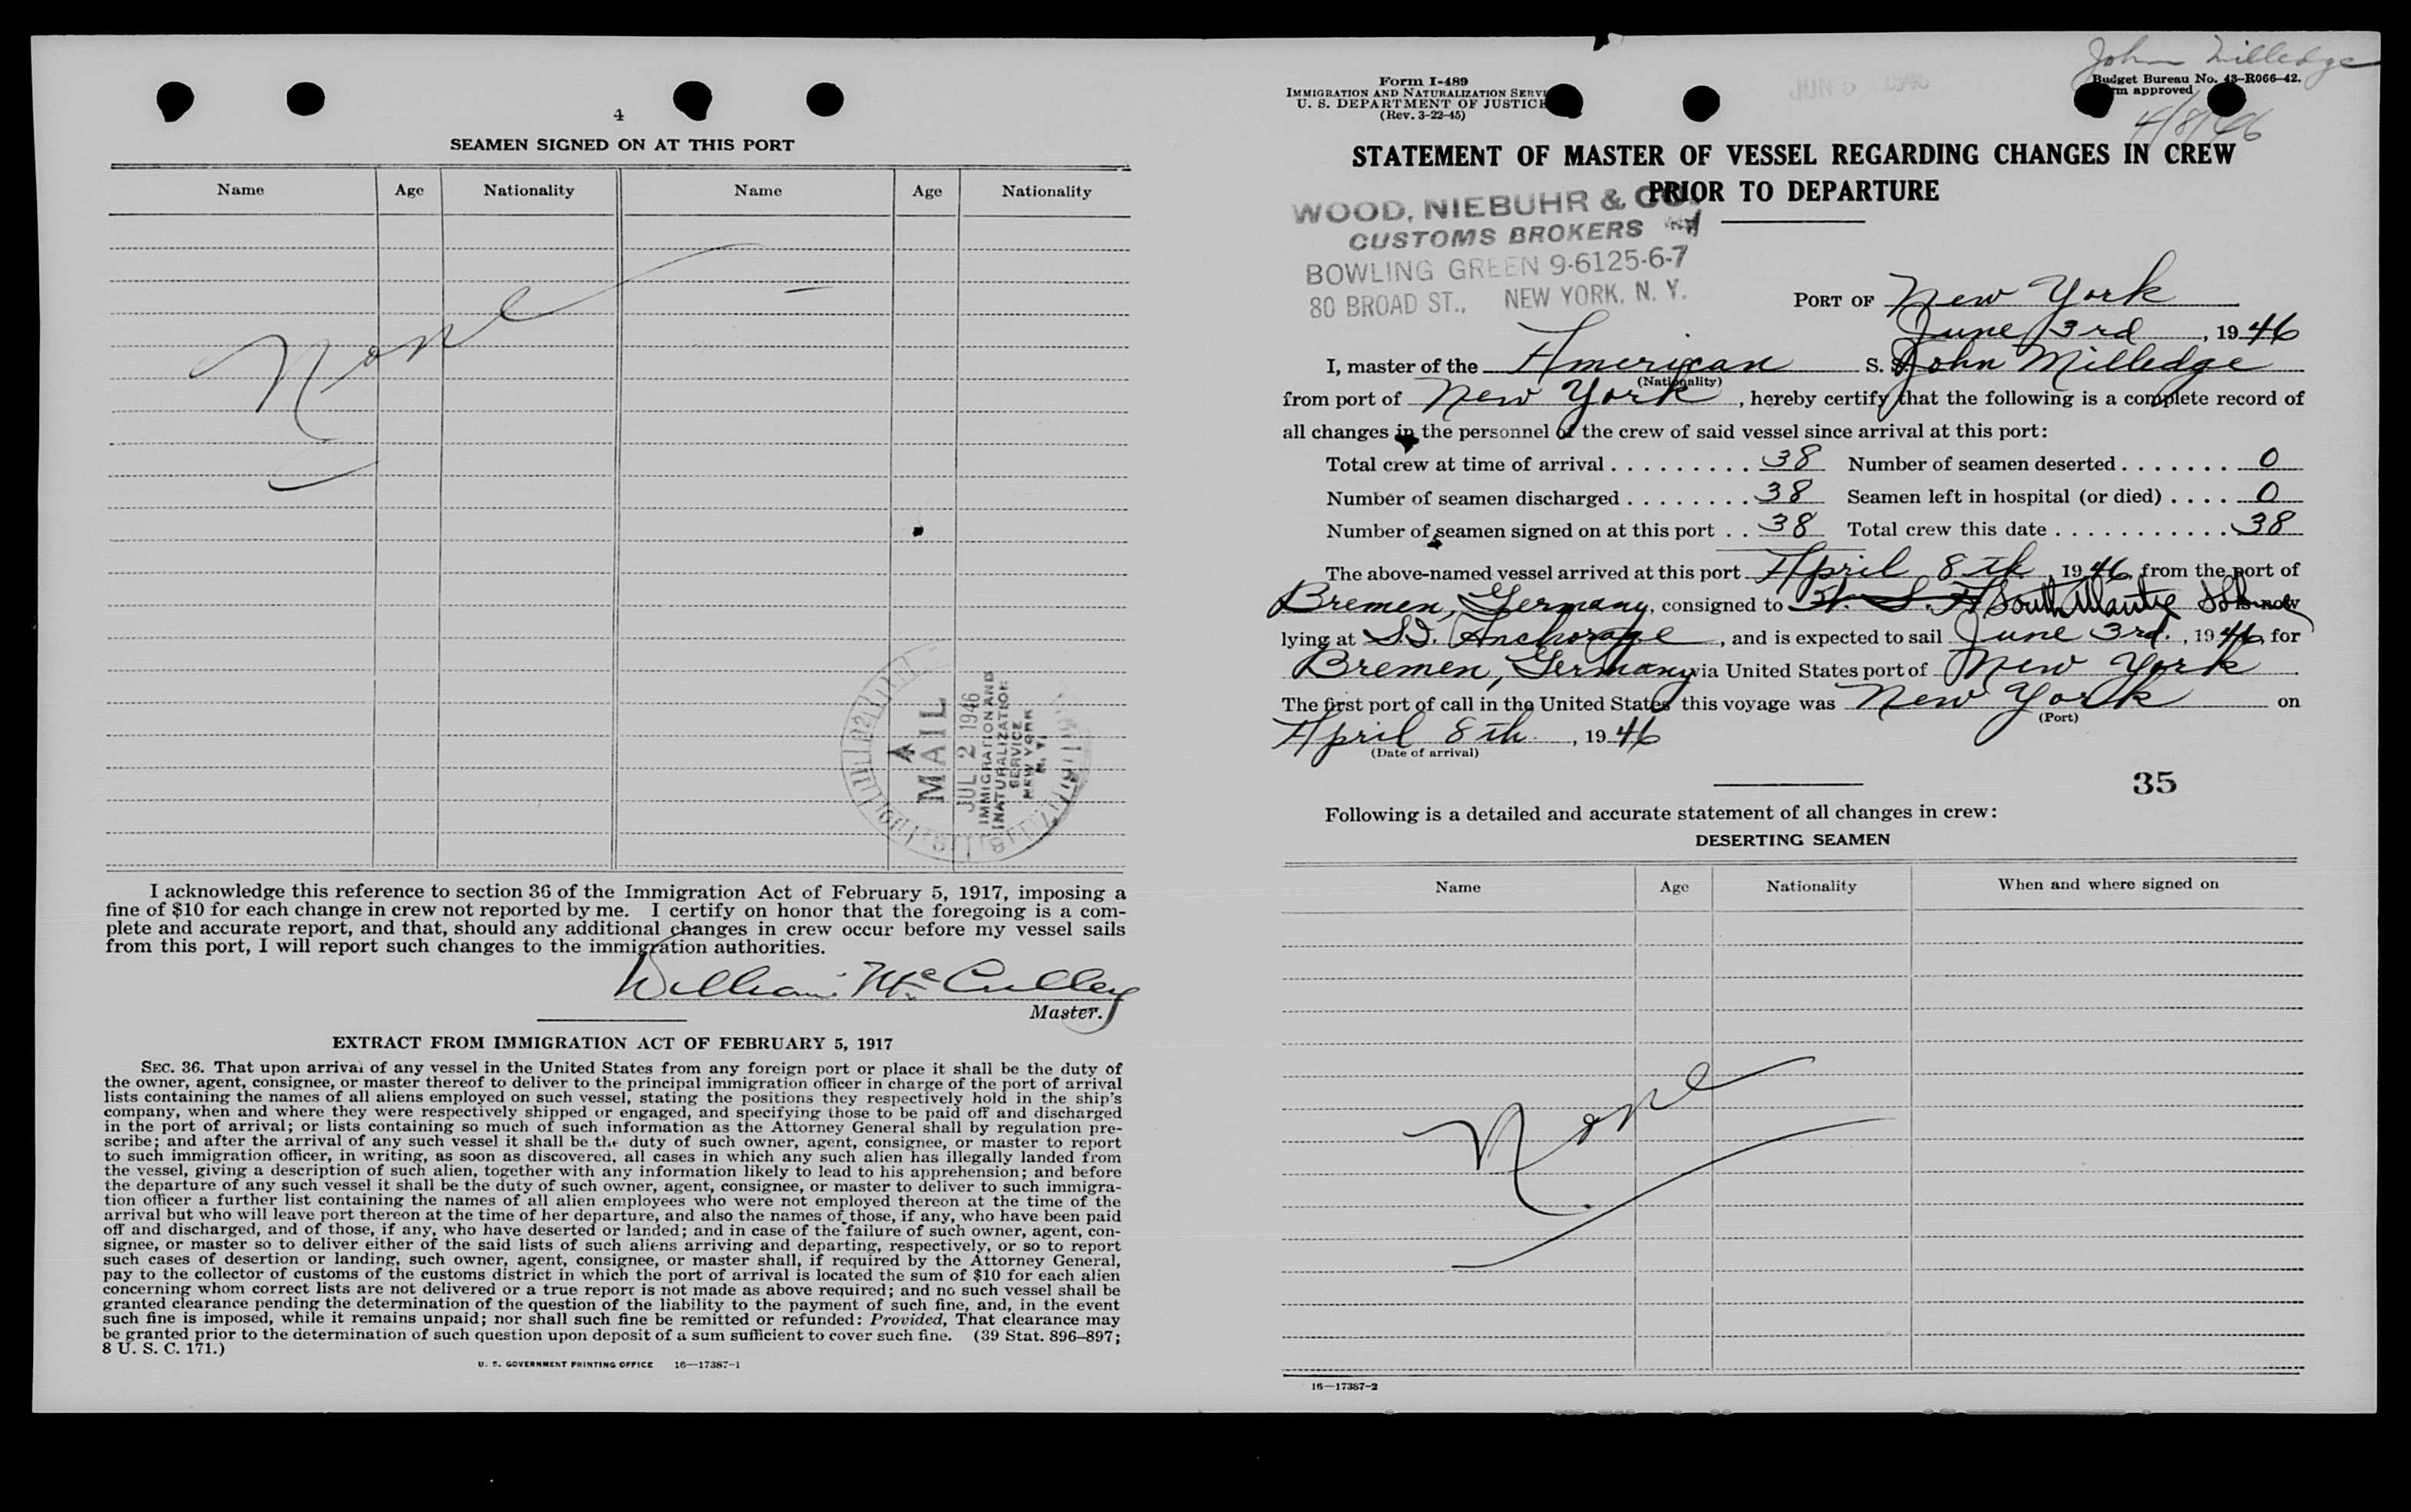 4
SEAMEN SIGNED ON AT THIS PORT
Name Age Nationality Name Age Nationality
None
A
MAIL
JUL 2 1946
IMMIGRATION AND
NATURALIZATION
SERVICE
NEW YORK
N. Y.
I acknowledge this reference to section 36 of the Immigration Act of February 5, 1917, imposing a
fine of $10 for each change in crew not reported by me. I certify on honor that the foregoing is a com-
plete and accurate report, and that, should any additional changes in crew occur before my vessel sails
from this port, I will report such changes to the immigration authorities.
William McCulley
Master.
EXTRACT FROM IMMIGRATION ACT OF FEBRUARY 5, 1917
SEC. 36. That upon arrival of any vessel in the United States from any foreign port or place it shall be the duty of
the owner, agent, consignee, or master thereof to deliver to the principal immigration officer in charge of the port of arrival
lists containing the names of all aliens employed on such vessel, stating the positions they respectively hold in the ship's
company, when and where they were respectively shipped or engaged, and specifying those to be paid off and discharged
in the port of arrival; or lists containing so much of such information as the Attorney General shall by regulation pre-
scribe; and after the arrival of any such vessel it shall be the duty of such owner, agent, consignee, or master to report
to such immigration officer, in writing, as soon as discovered, all cases in which any such alien has illegally landed from
the vessel, giving a description of such alien, together with any information likely to lead to his apprehension; and before
the departure of any such vessel it shall be the duty of such owner, agent, consignee, or master to deliver to such immigra-
tion officer a further list containing the names of all alien employees who were not employed thereon at the time of the
arrival but who will leave port thereon at the time of her departure, and also the names of those, if any, who have been paid
off and discharged, and of those, if any, who have deserted or landed; and in case of the failure of such owner, agent, con-
signee, or master so to deliver either of the said lists of such aliens arriving and departing, respectively, or so to report
such cases of desertion or landing, such owner, agent, consignee, or master shall, if required by the Attorney General,
pay to the collector of customs of the customs district in which the port of arrival is located the sum of $10 for each alien
concerning whom correct lists are not delivered or a true report is not made as above required; and no such vessel shall be
granted clearance pending the determination of the question of the liability to the payment of such fine, and, in the event
such fine is imposed, while it remains unpaid; nor shall such fine be remitted or refunded: Provided, That clearance may
be granted prior to the determination of such question upon deposit of a sum sufficient to cover such fine. (39 Stat. 896–897;
8 U. S. C. 171.)
U. S. GOVERNMENT PRINTING OFFICE 16—17387-1
John Milledge
Form I-489
IMMIGRATION AND NATURALIZATION SERVI
U. S. DEPARTMENT OF JUSTICE
(Rev. 3-22-45)
JUN 5 1946
Budget Bureau No. 43–R066–42.
rm approved
4/8/46
STATEMENT OF MASTER OF VESSEL REGARDING CHANGES IN CREW
PRIOR TO DEPARTURE
WOOD, NIEBUHR & CO.
CUSTOMS BROKERS
BOWLING GREEN 9-6125-6-7
80 BROAD ST., NEW YORK, N. Y.
PORT OF New York
June 3rd, 1946
I, master of the American S. S. John Milledge
(Nationality)
from port of New York, hereby certify that the following is a complete record of
all changes in the personnel of the crew of said vessel since arrival at this port:
Total crew at time of arrival . . . . . . . . . . 38 Number of seamen deserted . . . . . . . 0
Number of seamen discharged . . . . . . . . 38 Seamen left in hospital (or died) . . . . 0
Number of seamen signed on at this port . . 38 Total crew this date . . . . . . . . . . . 38
The above-named vessel arrived at this port April 8th, 1946, from the port of
Bremen, Germany, consigned to W. S. A. South Atlantic is now
lying at S.I. Anchorage, and is expected to sail June 3rd., 1946, for
Bremen, Germany via United States port of New York
The first port of call in the United States this voyage was New York on
(Port)
April 8th, 1946
(Date of arrival)
35
Following is a detailed and accurate statement of all changes in crew:
DESERTING SEAMEN
Name Age Nationality When and where signed on
None
16—17387-2